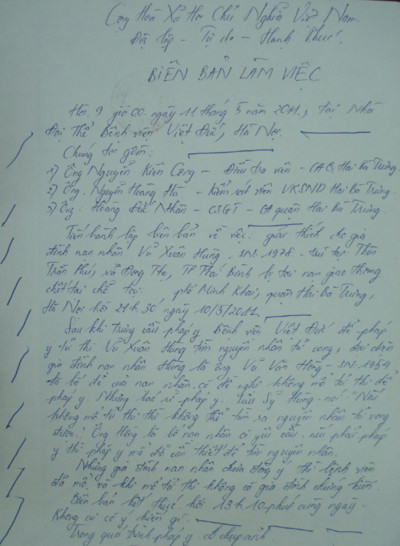 Cộng Hoà Xã Hội Chủ Nghĩa Việt Nam
Độc lập - Tự do - Hạnh Phúc
BIÊN BẢN LÀM VIỆC
Hồi 9 giờ 00 ngày 11 tháng 5 năm 2011, tại Nhà
Đại Thể Bệnh viện Việt Đức, Hà Nội.
Chúng tôi gồm:
1) Ông Nguyễn Kiên Cường - Điều tra viên - CAQ Hai Bà Trưng
2) Ông. Nguyễn Hoàng Hà - Kiểm sát viên VKSND Hai Bà Trưng.
3) Ông. Hoàng Đức Nhân - CSGT - CA quận Hai Bà Trưng.
Tiến hành lập biên bản về việc: giải thích cho gia
đình nạn nhân Vũ Xuân Hùng, SN: 1978. trú tại: Thôn
Trần Phú, xã Đông Thọ, TP Thái Bình bị tai nạn giao thông
chết tại chỗ tại phố Minh Khai, quận Hai Bà Trưng,
Hà Nội hồi 21h30 ngày 10/5/2011.
Sau khi trưng cầu pháp y Bệnh viện Việt Đức để pháp
y tử thi Vũ Xuân Hùng tìm nguyên nhân tử vong, đại diện
gia đình nạn nhân Hùng là ông Vũ Văn Hồng - SN: 1954
là bố đẻ của nạn nhân có đề nghị không mổ tử thi để pháp
y Nhưng bác sĩ pháp y. Lưu Sỹ Hùng nói "Nếu
không mổ tử thi thì không thể tìm ra nguyên nhân tử vong
được". Ông Hồng là bố nạn nhân có yêu cầu. nếu phải pháp
y thì pháp y mổ để cần thiết để tìm nguyên nhân.
Nhưng gia đình nạn nhân chưa đồng ý thì bệnh viện
đã mổ và khi mổ tử thi không có gia đình chứng kiến
Biên bản kết thúc hồi 13h10 phút cùng ngày.
Không ai có ý kiến gì.
Trong quá trình pháp y có chụp ảnh